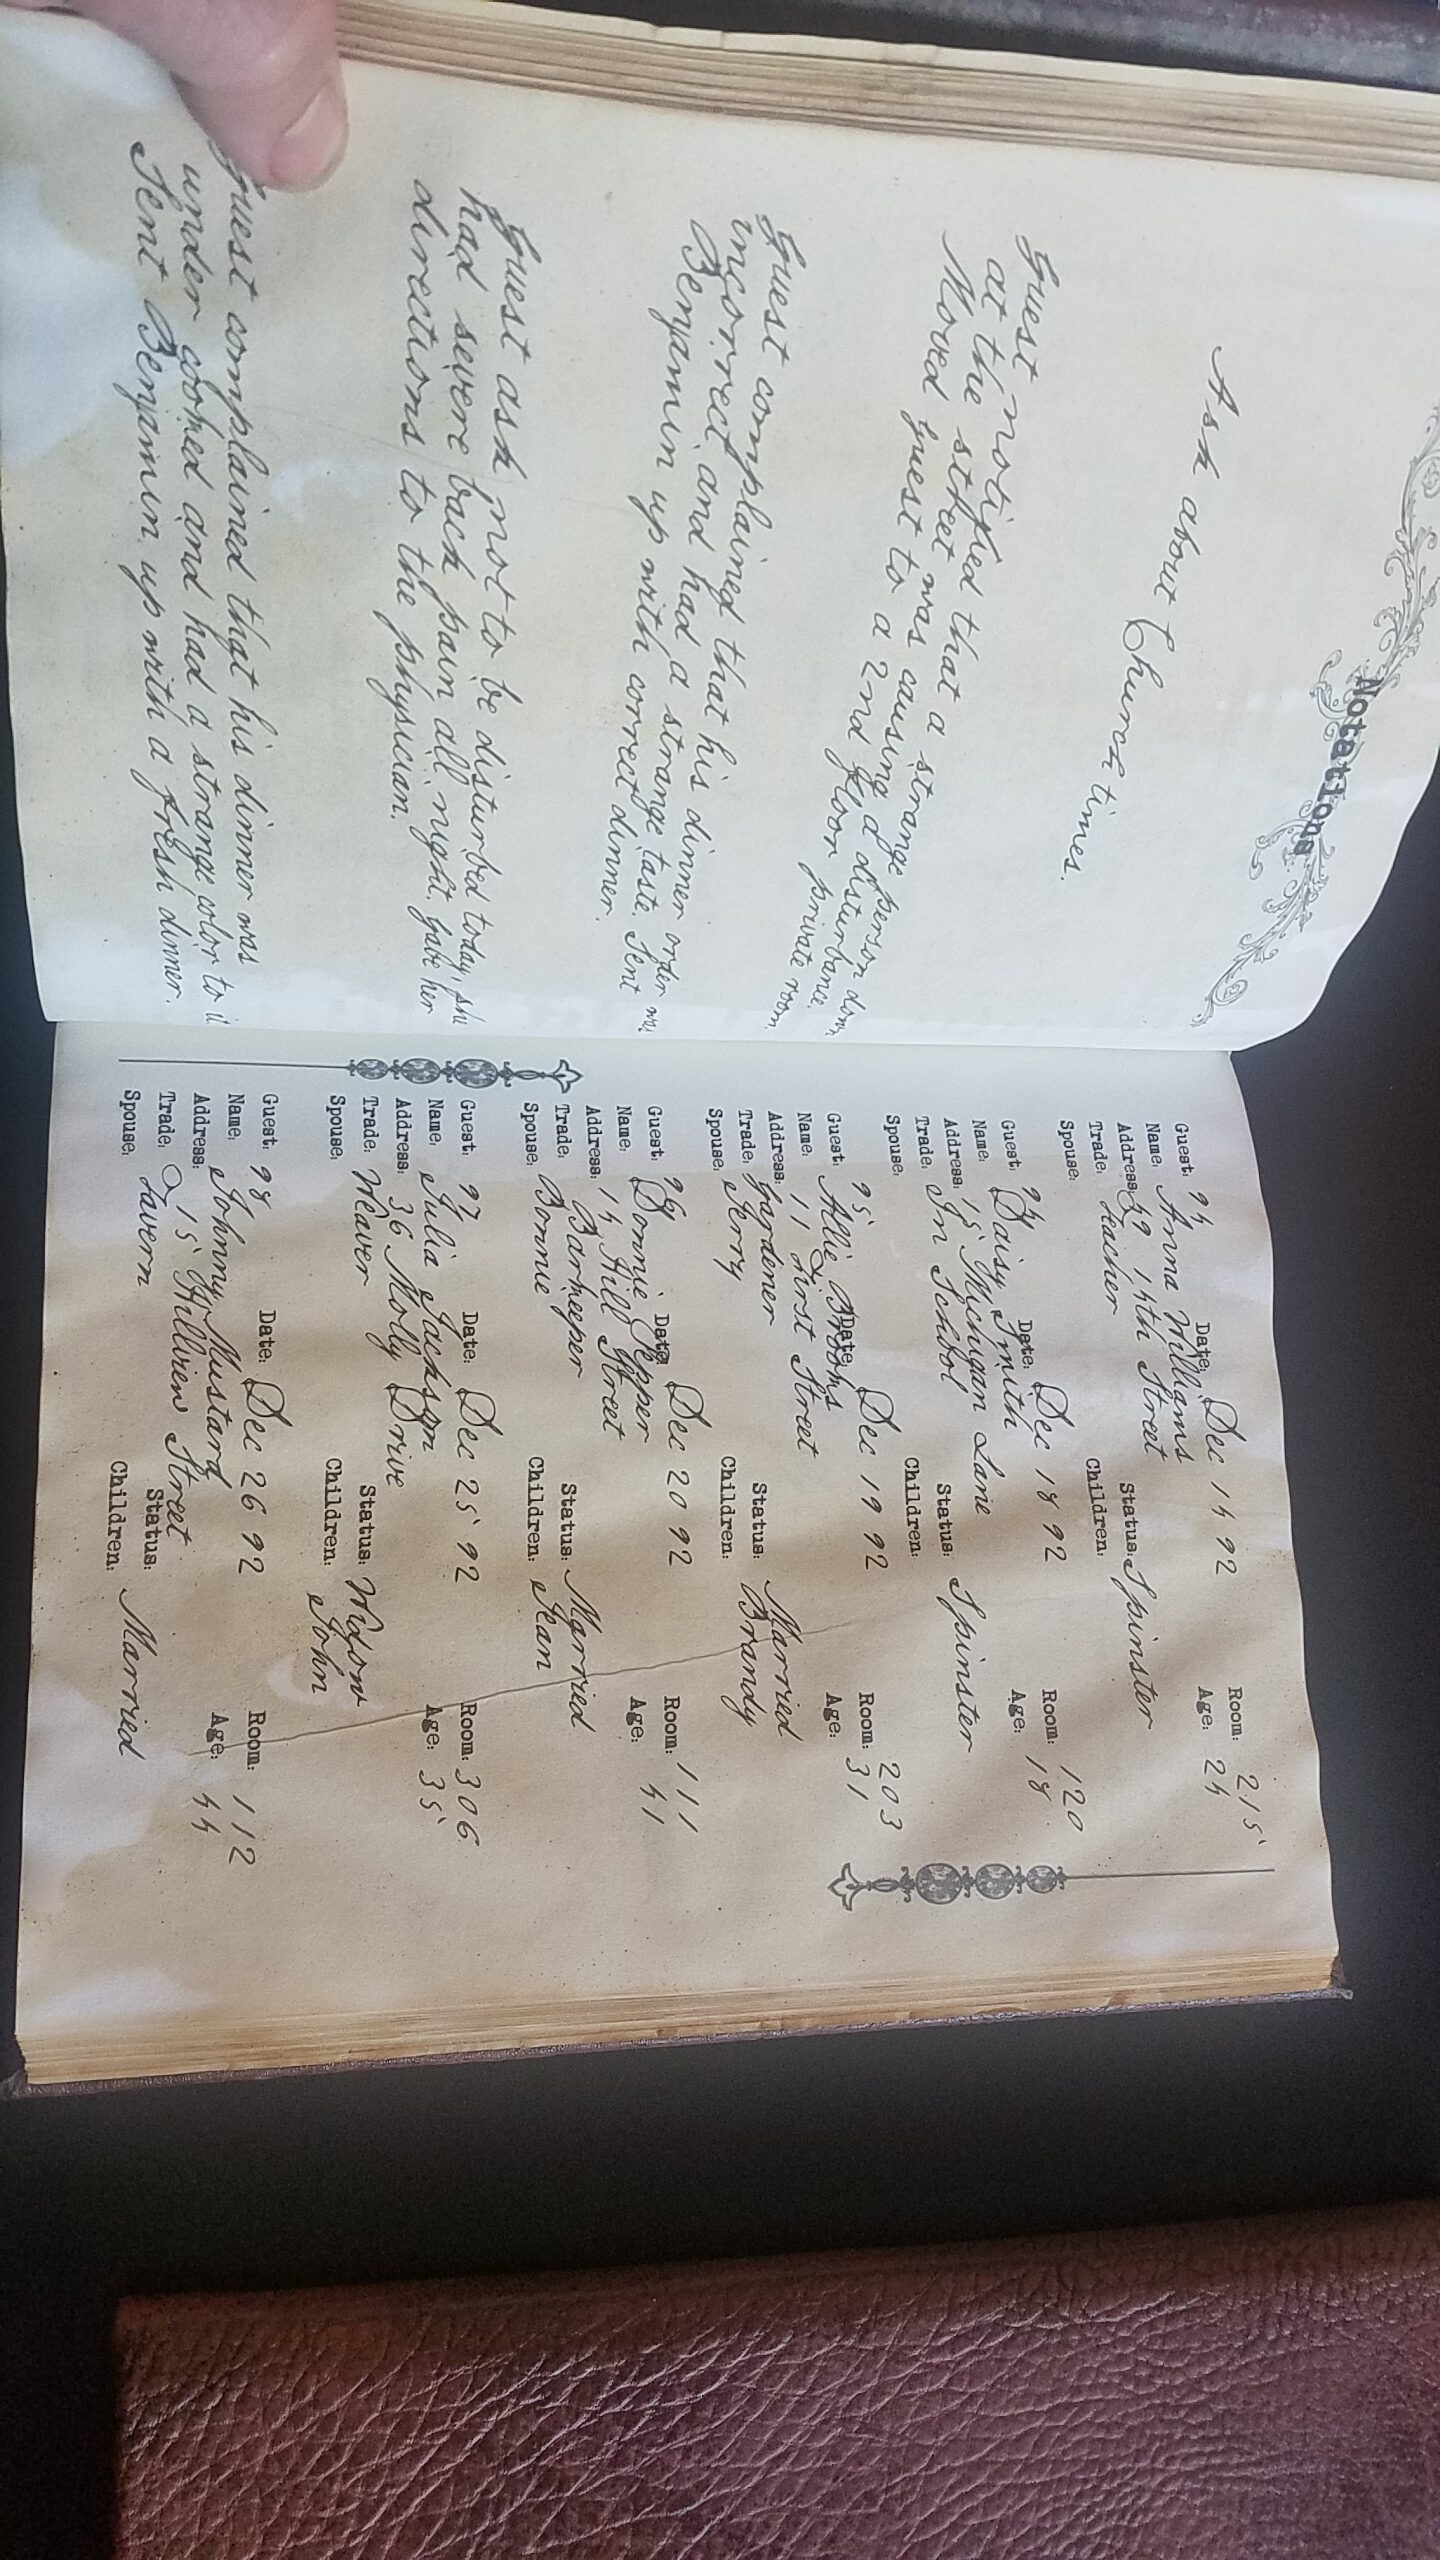 Notations
Ask about Church times.
Guest notified that a strange person down
at the street was causing a disturbance.
Moved guest to a 2nd floor private room.
Guest complained that his dinner order was
incorrect and had a strange taste. Sent
Benjamin up with correct dinner.
Guest ask not to be disturbed today, she
had severe back pain all night. Gave her
directions to the physician.
Guest complained that his dinner was
under cooked and had a strange color to it
Sent Benjamin up with a fresh dinner.
Guest: 94 Date: Dec 14 92 Room: 215
Name: Anna Williams Age: 24
Address: 14th Street Status: Spinster
Trade: Teacher Children:
Spouse:
Guest: 94 Date: Dec 18 92 Room: 120
Name: Daisy Smith Age: 18
Address: 15 Michigan Lane Status: Spinster
Trade: In School Children:
Spouse:
Guest: 95 Date: Dec 19 92 Room: 203
Name: Allie Brooks Age: 31
Address: 11 First Street Status: Married
Trade: Gardener Children: Brandy
Spouse: Jerry
Guest: 96 Date: Dec 20 92 Room: 111
Name: Donnie Pepper Age: 41
Address: 14 Hill Street Status: Married
Trade: Barkeeper Children: Jean
Spouse: Bonnie
Guest: 97 Date: Dec 25 92 Room: 306
Name: Julia Jackson Age: 35
Address: 36 Molly Drive Status: Widow
Trade: Weaver Children: John
Spouse:
Guest: 98 Date: Dec 26 92 Room: 112
Name: Johnny Mustard Age: 44
Address: 15 Hillview Street Status: Married
Trade: Tavern Children:
Spouse: